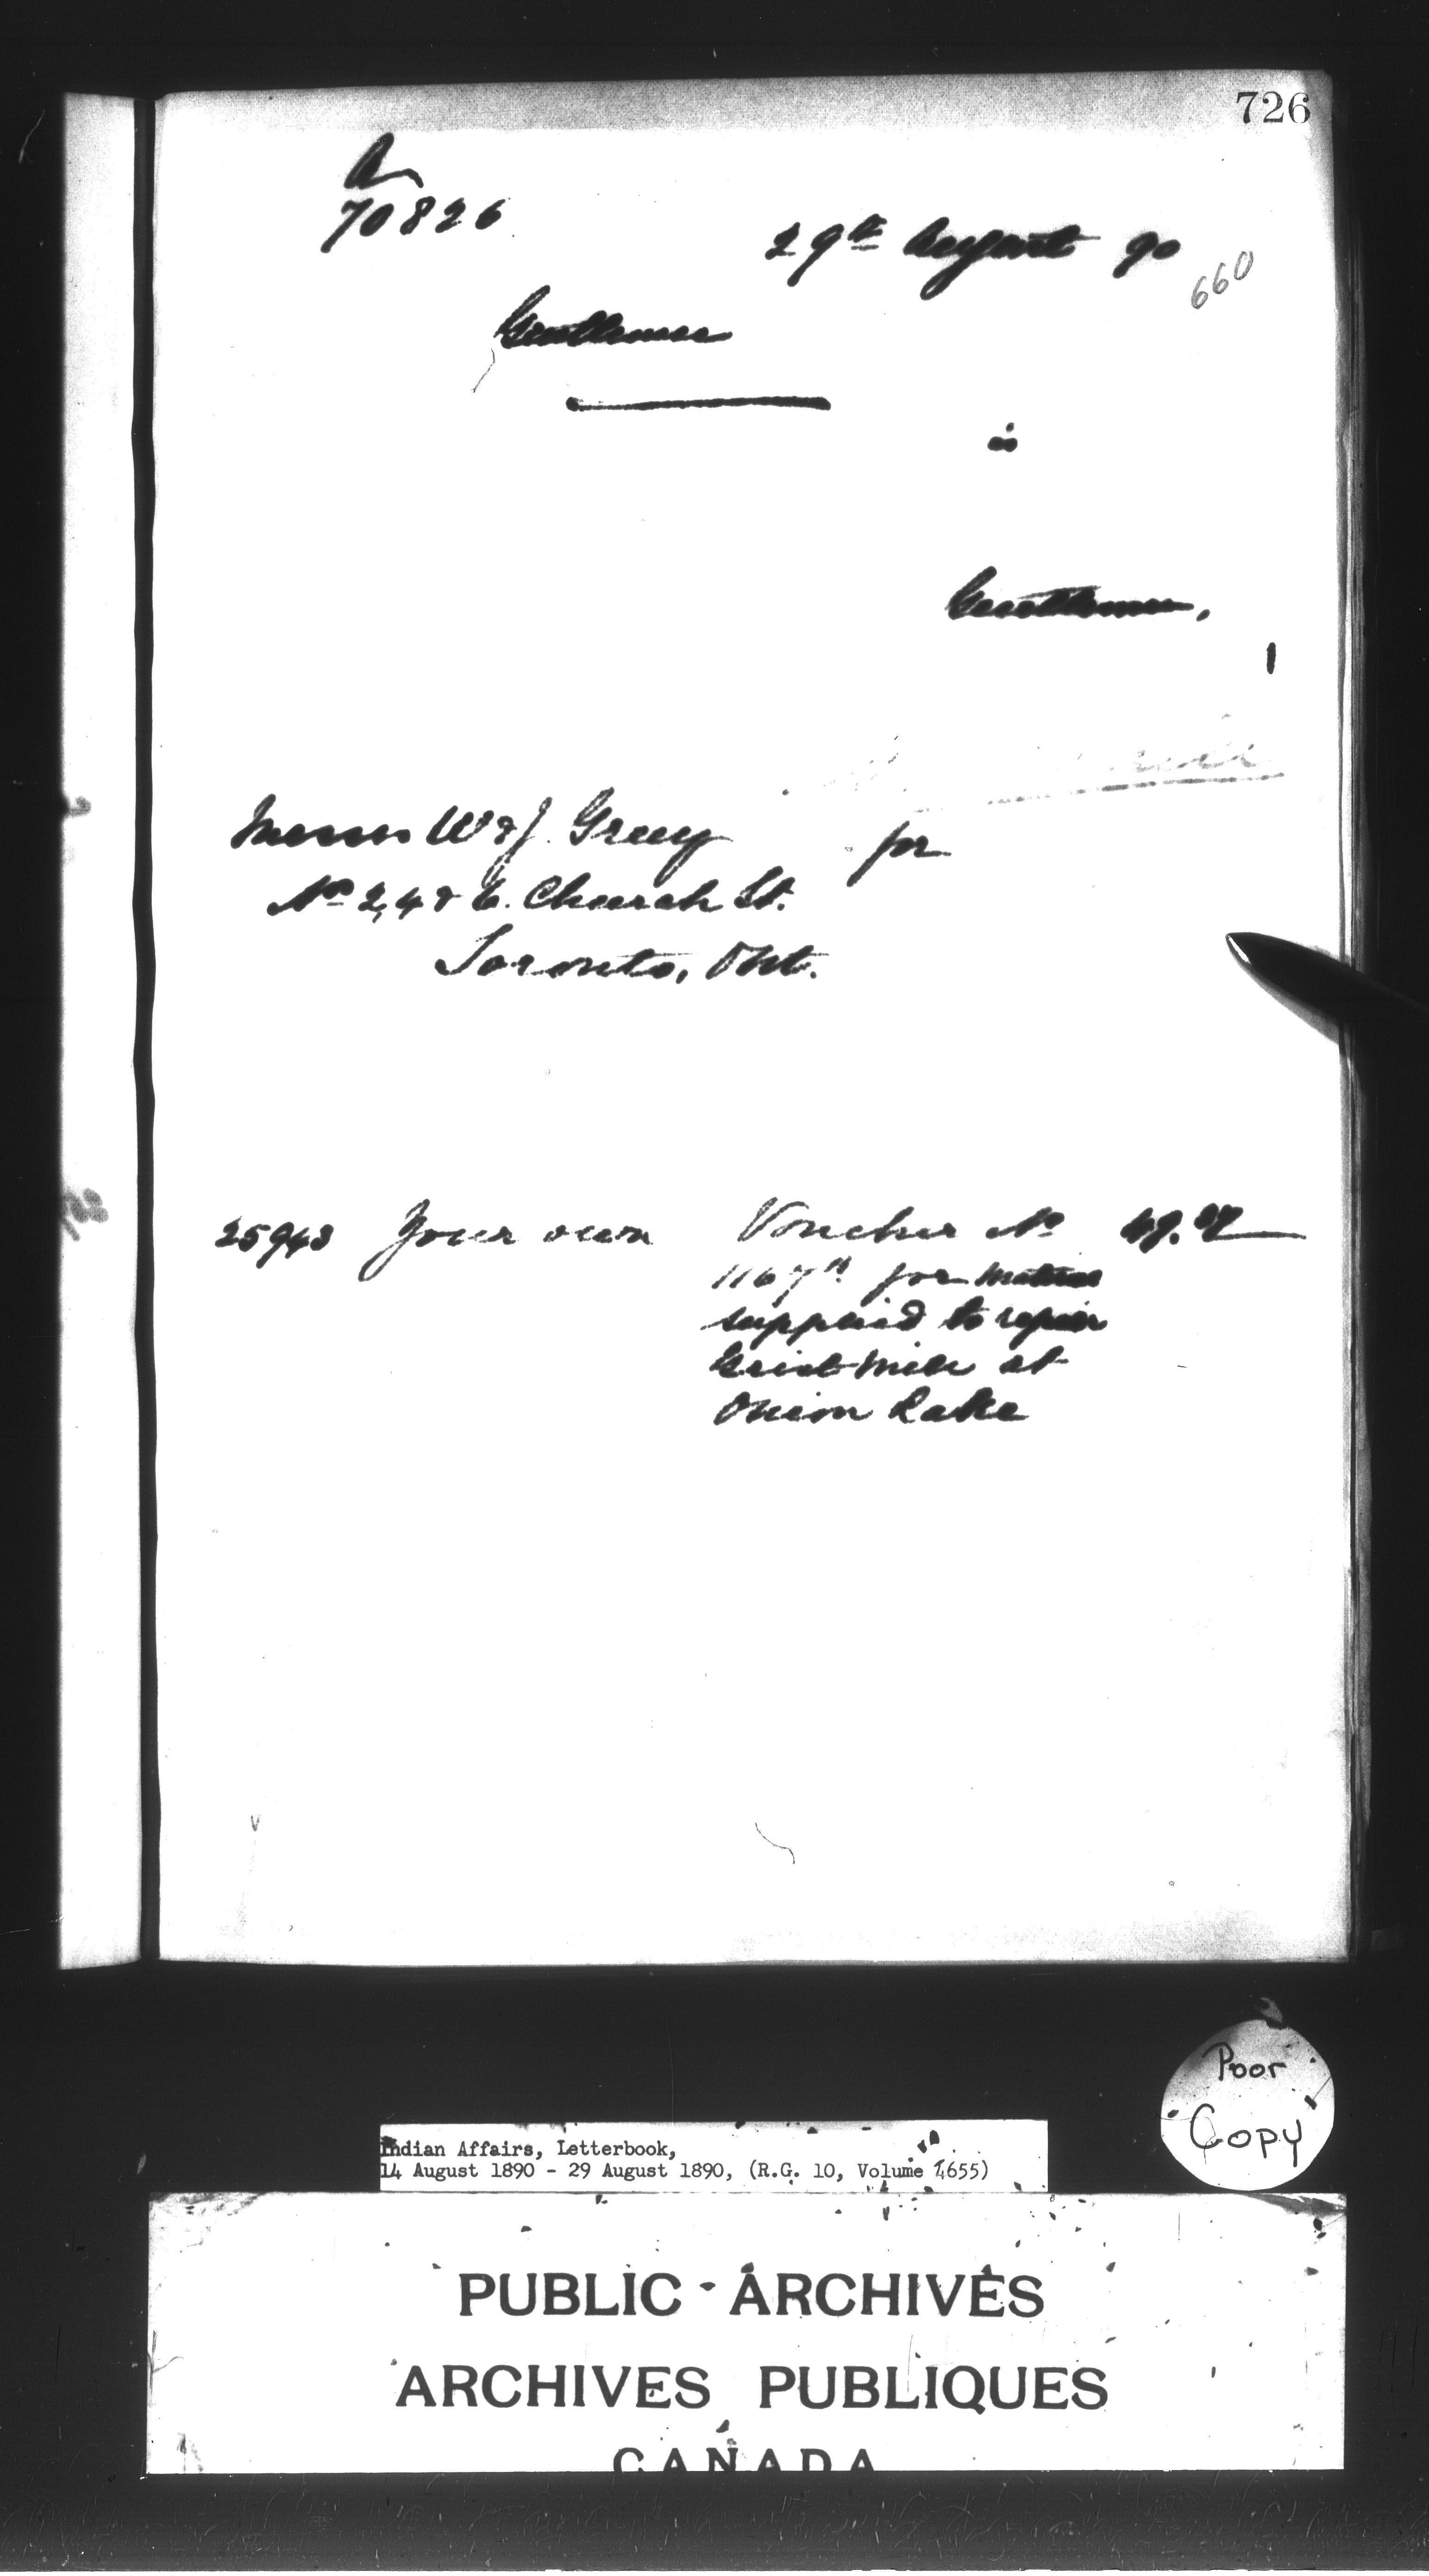 726
70826
29th August 90
660
Gentlemen
is
Gentlemen,
Messrs W & J. Greey
for
No 2, 4 & 6. Church St.
Toronto, Ont.
25943 Your own Voucher No
1167 for
supplied to repair
Grist Mill at
Onion Lake
Poor
Copy
Indian Affairs, Letterbook,
14 August 1890 - 29 August 1890, (R.G. 10, Volume 4655)
PUBLIC ARCHIVES
ARCHIVES PUBLIQUES
CANADA